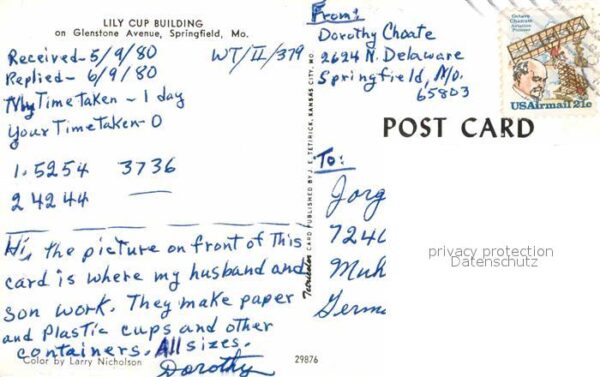 LILY CUP BUILDING
on Glenstone Avenue, Springfield, Mo.
Received-5/9/80 WT/II/379
Replied-6/9/80
My Time Taken - 1 day
Your Time Taken-0
1.5254 3736
2 4244
Hi, the picture on front of This
card is where my husband and
son work. They make paper
and Plastic cups and other
containers. All sizes.
Dorothy
Color by Larry Nicholson
29876
CARD PUBLISHED BY J. E. TETIRICK, KANSAS CITY, MO.
From:
Dorothy Choate
2624 N. Delaware
Springfield, Mo.
65803
Octave Chanute
Aviation Pioneer
USAirmail 21c
POST CARD
To:
Jorg
724
Muh
Germ
privacy protection
Datenschutz